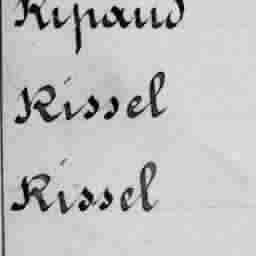 Ripaud
Rissel
Rissel